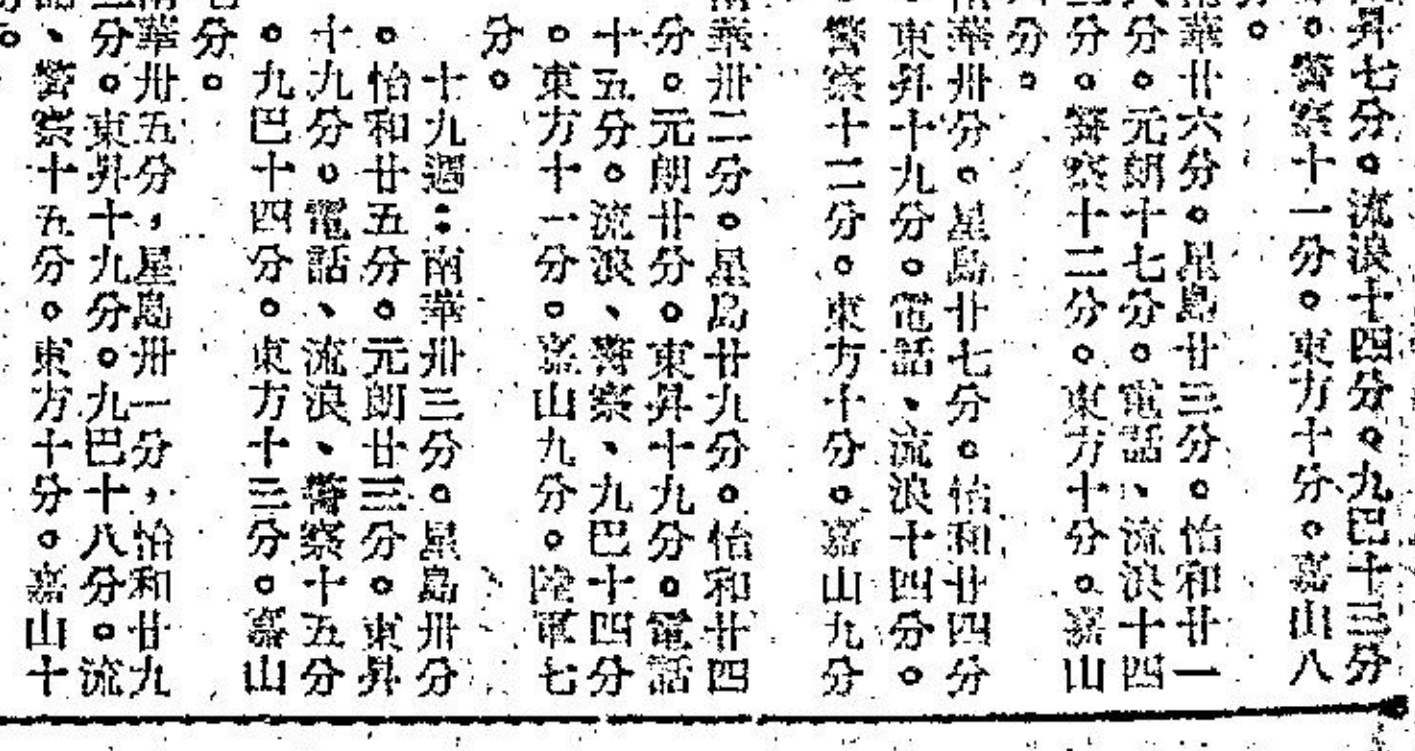 昇七分。流浪十四分。九巴十三分
。警察十一分。東方十分。嘉山八
。
南華廿六分。星島廿三分。怡和廿一
分。元朗十七分。電話、流浪十四
分。警察十二分。東方十分。嘉山
分。
華卅分。星島廿七分。怡和廿四分
。東昇十九分。電話、流浪十四分。
警察十二分。東方十分。嘉山九分
南華卅二分。星島廿九分。怡和廿四
分。元朗廿分。東昇十九分。電話
十五分。流浪、警察、九巴十四分
。東方十一分。嘉山九分。陸電七
分。
十九週：南華卅三分。星島卅分
。怡和廿五分。元朗廿三分。東昇
十九分。電話、流浪、警察十五分
。九巴十四分。東方十三分。嘉山
分。
南華卅五分，星島卅一分，怡和廿九
分。東昇十九分。九巴十八分。流
、警察十五分。東方十分。嘉山十
。